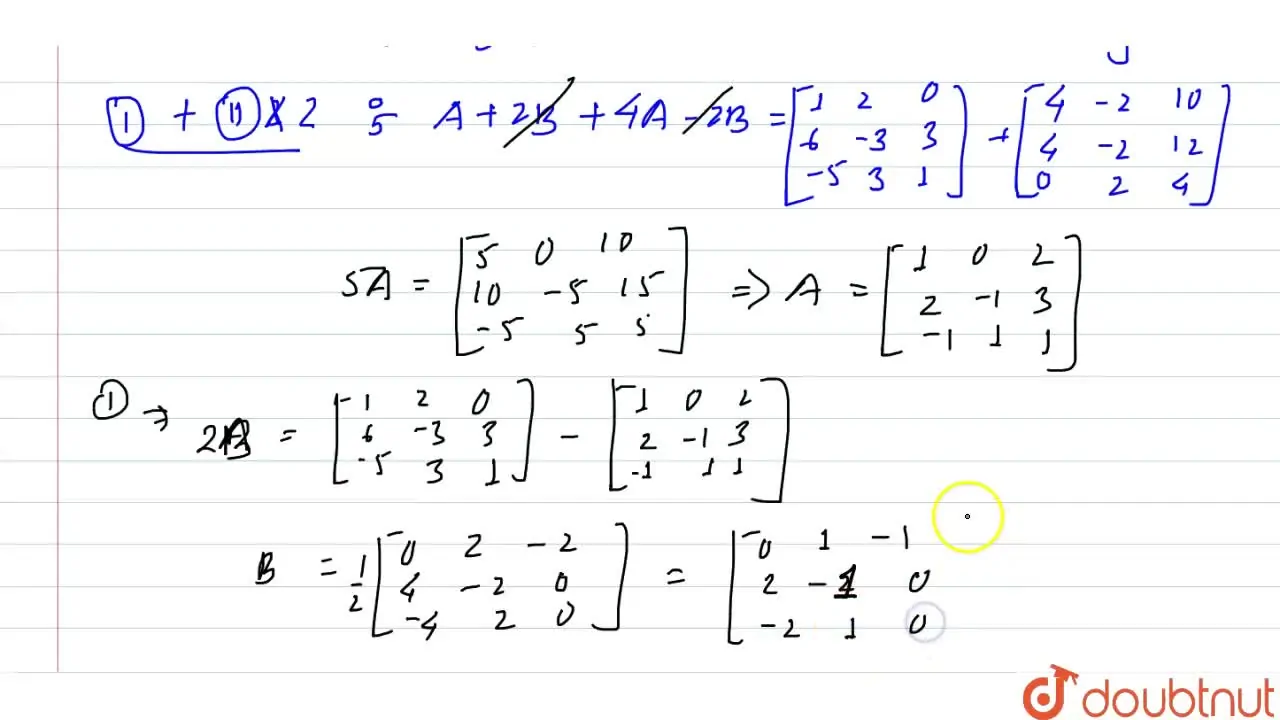 ① + ⑪ × 2 : A + 2B + 4A - 2B = [1 2 0; 6 -3 3; -5 3 1] + [4 -2 10; 4 -2 12; 0 2 4]
5A = [5 0 10; 10 -5 15; -5 5 5] => A = [1 0 2; 2 -1 3; -1 1 1]
① → 2B = [1 2 0; 6 -3 3; -5 3 1] - [1 0 2; 2 -1 3; -1 1 1]
B = 1/2 [0 2 -2; 4 -2 0; -4 2 0] = [0 1 -1; 2 -1 0; -2 1 0]
doubtnut